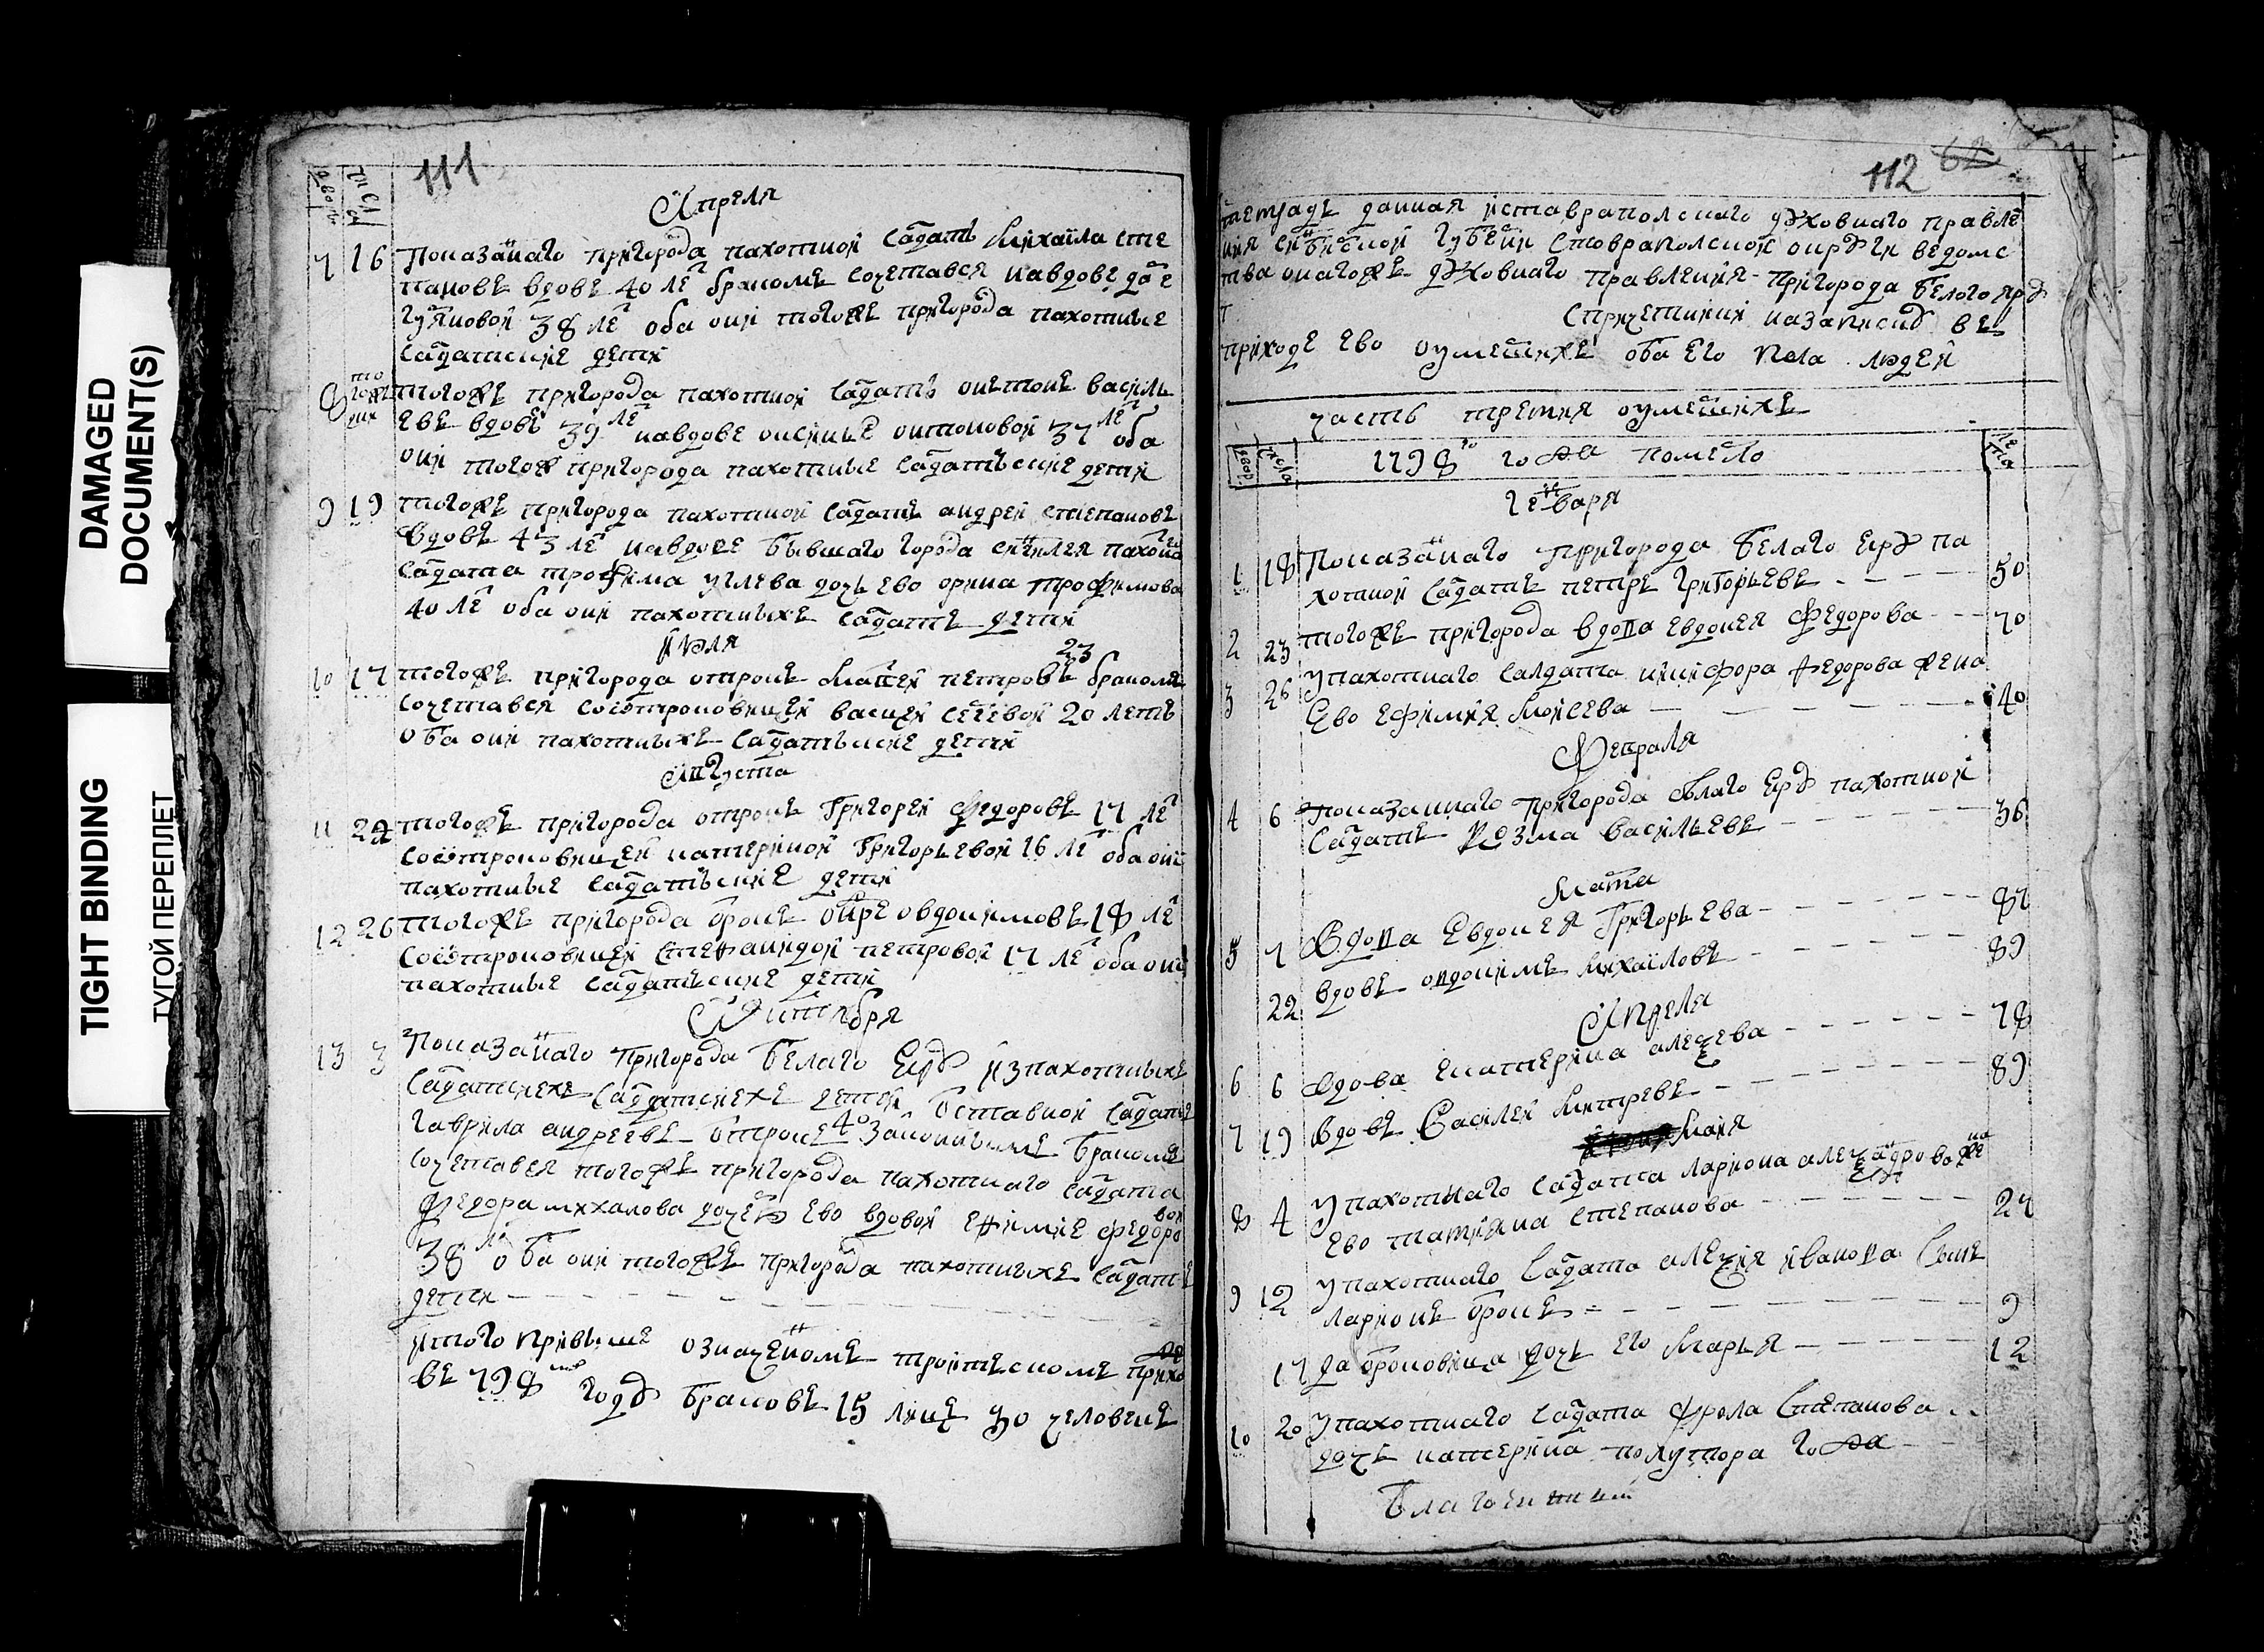 DAMAGED
DOCUMENT(S)
TIGHT BINDING
ТУГОЙ ПЕРЕПЛЕТ
111
Апреля
7 16 Показанаго пригорода пахотной салдатъ Михаила Сте
пановъ вдовъ 40 лѣ бракомъ сочетався на вдовѣ
38 лѣ оба они тогожъ пригорода пахотные
салдатские дети
8 тогожъ пригорода пахотной салдатъ василь
евъ вдовъ 39 лѣ на вдовѣ антоновой 37 лѣ оба
они тогожъ пригорода пахотные салдатские дети
9 19 тогожъ пригорода пахотной салдатъ андрей степановъ
вдовъ 43 лѣ на вдовѣ бывшаго города пахотнаго
салдата трофима углева дочь ево орина трофимова
40 лѣ оба они пахотныхъ салдатъ дети
Июля
10 17 тогожъ пригорода отрокъ Матвей петровъ 23 бракомъ
сочетався со отроковицей 20 летъ
оба они пахотныхъ салдатские дети
Августа
11 22 тогожъ пригорода отрокъ Григорей Федоровъ 17 лѣ
со отроковицей катериной Григорьевой 16 лѣ оба они
пахотные салдатские дети
12 26 тогожъ пригорода отрокъ овдокимовъ 18 лѣ
со отроковицей Стефанидой петровой 17 лѣ оба они
пахотные салдатские дети
Октября
13 3 Показанаго пригорода Белаго Еру из пахотныхъ
салдатскихъ салдатскихъ детей отставной салдатъ
гаврила андреевъ отрокъ 40 законнымъ бракомъ
сочетався тогожъ пригорода пахотнаго салдата
Федора михалова дочерь ево вдовой ефимие федоровой
38 лѣ оба они тогожъ пригорода пахотныхъ салдатъ
дети
итого при выше означеномъ троитскомъ прихо
въ 798 году браковъ 15 лицъ 30 человекъ
112
тетрадь данная из ставрополскаго духовнаго правле
ния синбирской губернии ставрополской округи ведомс
тва онагожъ духовнаго правления пригорода белого яру
с причетники на записку въ
приходе ево умершихъ оба его пола людей
часть третия о умершихъ
1798 года померло
Генваря
1 18 Показанаго пригорода Белаго Еру па
хотной салдатъ петръ григорьевъ 50
2 23 тогожъ пригорода вдова евдокея Федорова 70
3 26 У пахотнаго салдата никифора Федорова жена
ево ефимия Моисева 40
Февраля
4 6 Показаннаго пригорода белаго Еру пахотной
салдатъ козма васильевъ 36
Марта
5 7 Вдова Евдокея Григорьева 87
22 вдовъ овдокимъ Михаиловъ 89
Апреля
6 6 вдова Екатерина алексева 78
7 19 вдовъ Василей Митревъ 89
Маия
8 4 У пахотнаго салдата лариона александрова жена
ево татияна степанова 27
9 12 У пахотнаго салдата алексия иванова сынъ
ларионъ отрокъ 9
17 да отроковица дочь его Марья 12
10 20 У пахотнаго салдата Фрола Степанова
дочь катерина полутора года
Благочинный